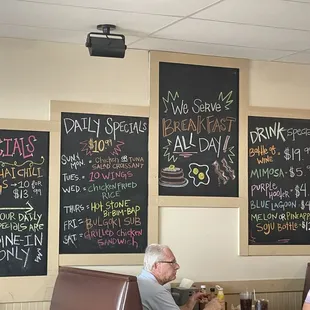 IALS
CHAI CHILI
FOR
$13
OUR DAILY
SPECIALS ARE
DINE-IN
ONLY
DAILY SPECIALS
$10.99
SUN/MON CHICKEN OR TUNA
SALAD CROISSANT
TUE: 10 WINGS
WED: CHICKEN PANED
RICE
THURS: HOT STONE
BI-BIM-BAP
FRI: BULGOGI SUB
SAT: GRILLED CHICKEN
SANDWICH
WE SERVE
BREAKFAST
ALL DAY
DRINK SPECIA
BOTTLE OF
WINE
$19.9
MIMOSA
PURPLE
HOOTER
BLUE LAGOON
MELON OR PINEAPP
SOJU BOTTLE